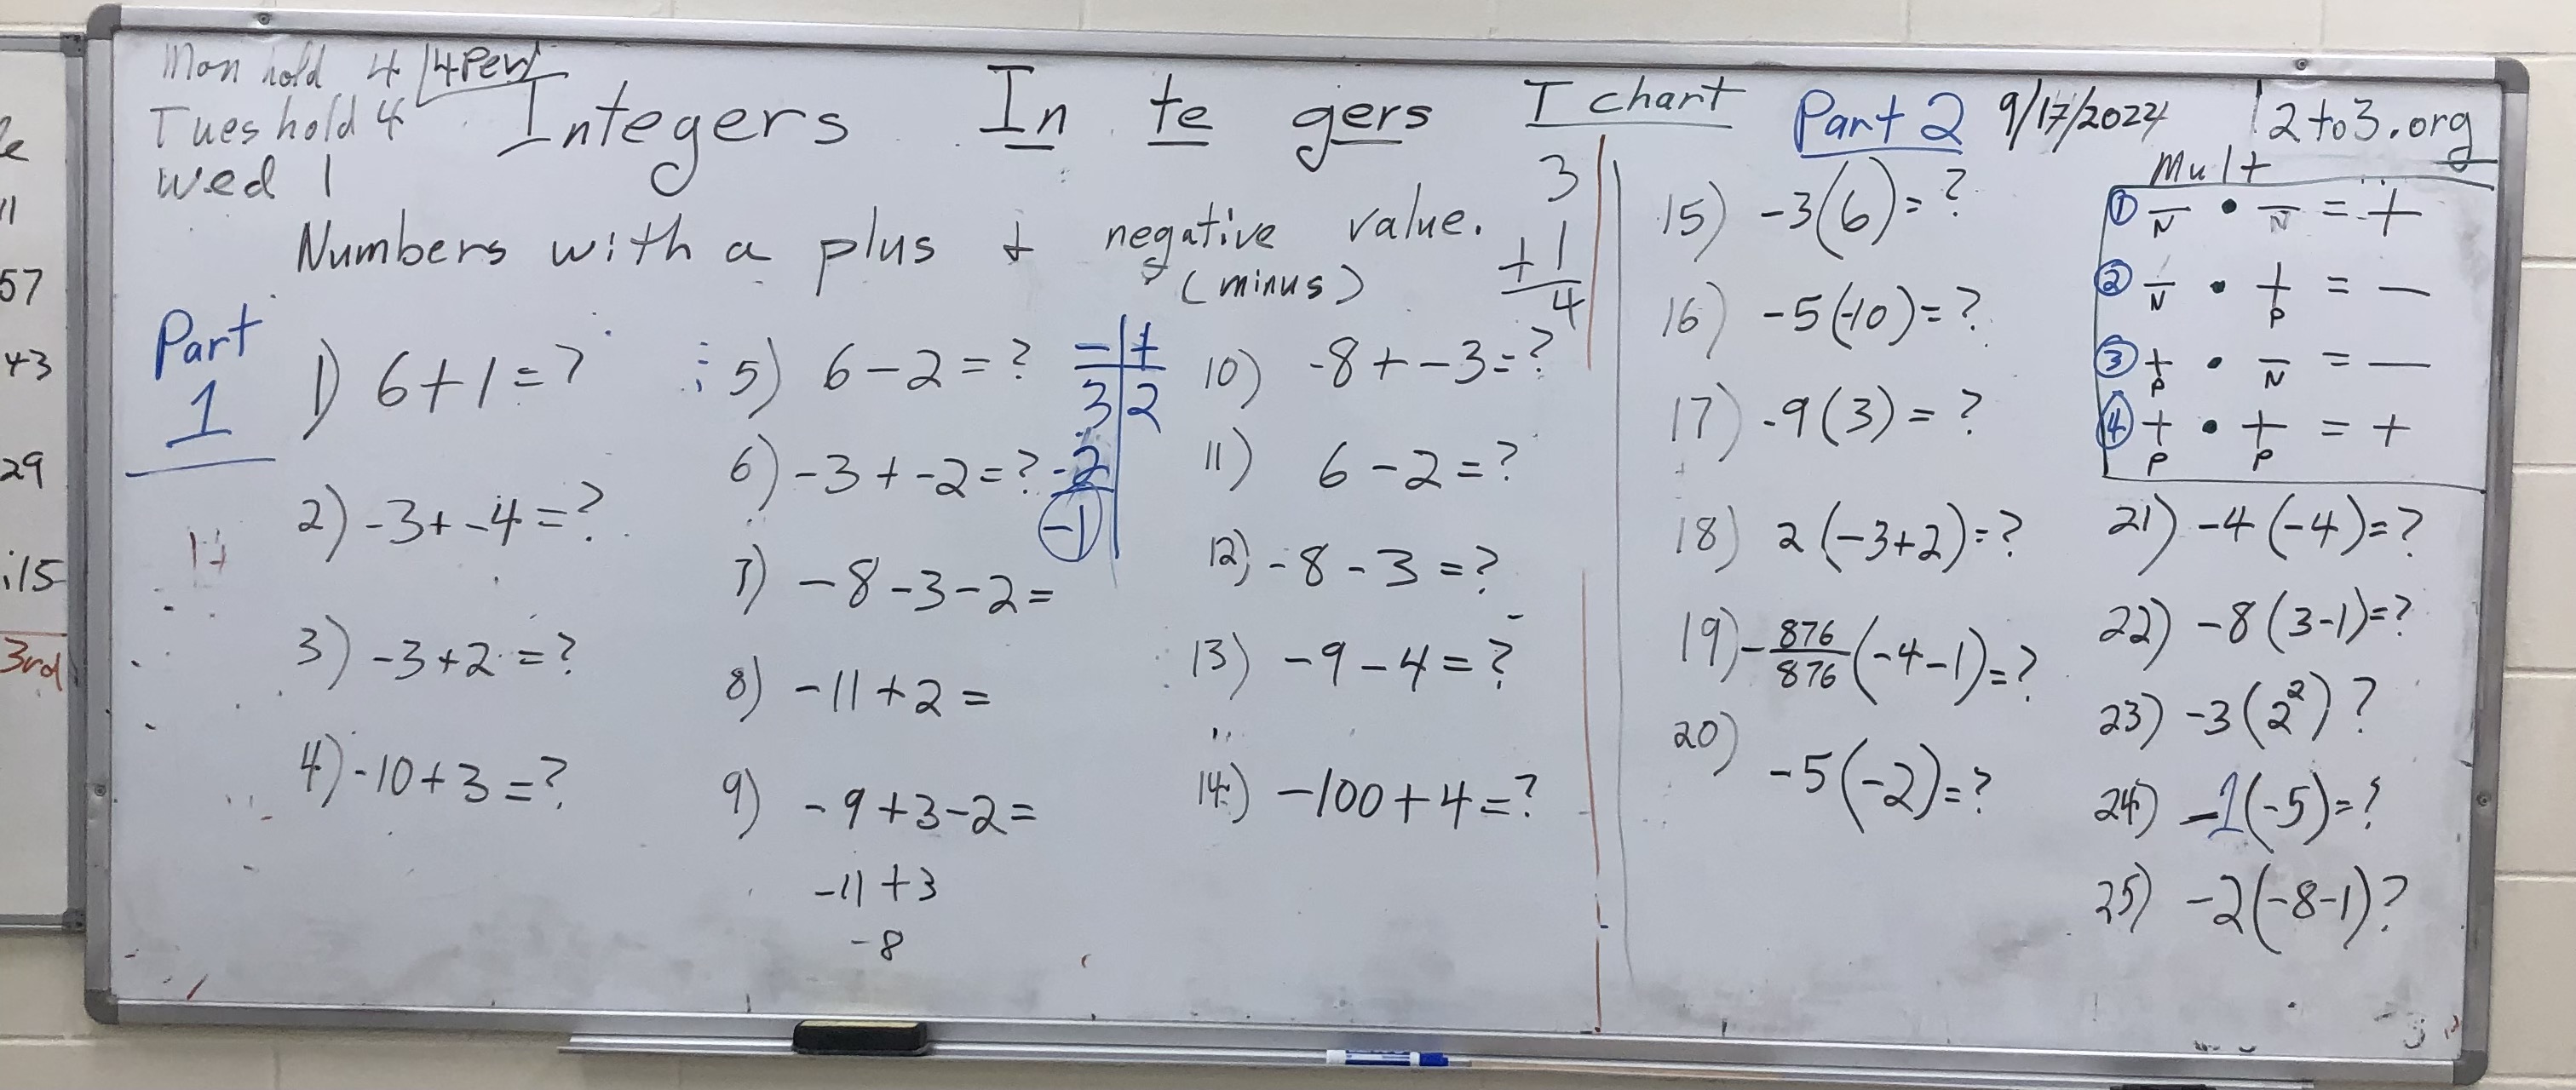 Mon hold 4 4 Per
Tues hold 4
Wed 1
Integers In te gers
Numbers with a plus + negative value.
(minus)
T chart
3
+1
4
Part
1
1) 6+1=?
2) -3+-4=?
3) -3+2=?
4) -10+3=?
5) 6-2=?
6) -3+-2=?
7) -8-3-2=
8) -11+2=
9) -9+3-2=
-11+3
-8
- +
3 2
-2
-1
10) -8+-3=?
11) 6-2=?
12) -8-3=?
13) -9-4=?
14) -100+4=?
Part 2 9/17/2024 12to3.org
15) -3(6)=?
16) -5(-10)=?
17) -9(3)=?
18) 2(-3+2)=?
19) -876/876(-4-1)=?
20) -5(-2)=?
Mult
① - • - = +
N N
② - • + = -
N P
③ + • - = -
P N
④ + • + = +
P P
21) -4(-4)=?
22) -8(3-1)=?
23) -3(2²)?
24) -1(-5)=?
25) -2(-8-1)?
11
57
43
29
:15
3rd